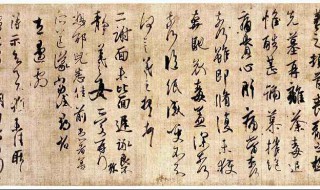 喪亂之極
先墓再離荼毒追
惟酷甚號慕摧絕
痛貫心肝痛當奈何
奈何雖即脩復未獲
奔馳哀毒益深奈何
奈何臨紙感哽不知
何言羲之頓首頓首
二謝面未比面遲詠良
不靜羲之女愛再拜
想邵兒悉佳前患者善
所送議當試尋省
左邊劇
得示知足下猶未佳耿